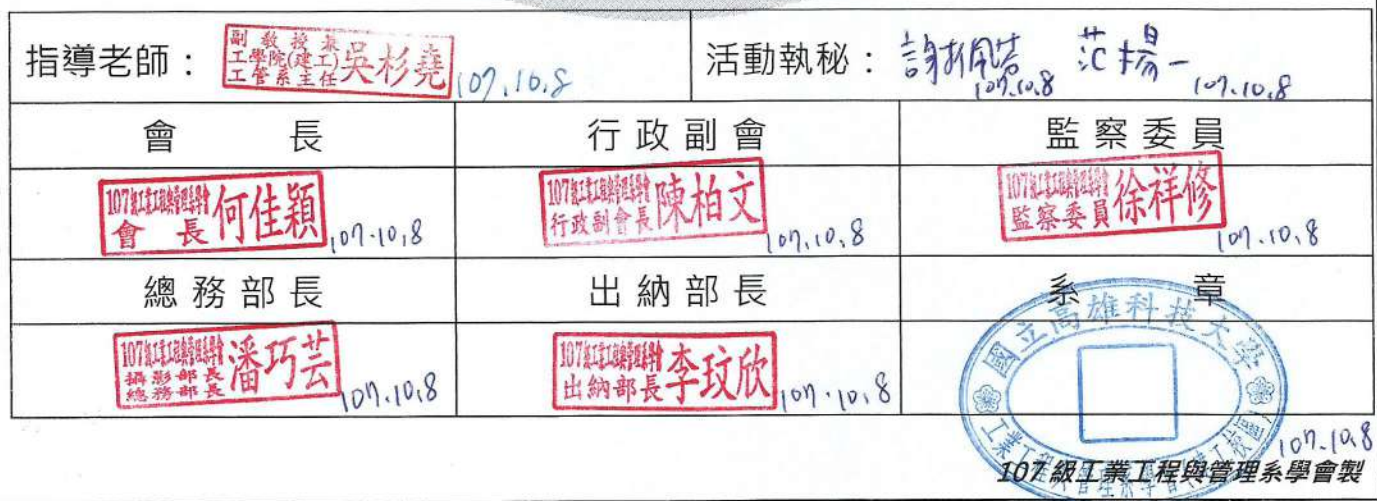 指導老師：
副教授兼
工學院(建工)
工管系主任
吳杉堯
107.10.8
活動執秘：
范揚一
107.10.8
107.10.8
會長
行政副會
監察委員
107級工業工程與管理系學會
會長
何佳穎
107.10.8
107級工業工程與管理系學會
行政副會長
陳柏文
107.10.8
107級工業工程與管理系學會
監察委員
徐祥修
107.10.8
總務部長
出納部長
系章
107級工業工程與管理系學會
攝影部長
總務部長
潘巧芸
107.10.8
107級工業工程與管理系學會
出納部長
李玟欣
107.10.8
國立高雄科技大學
工業工程與管理系學會(建工校區)
107.10.8
107級工業工程與管理系學會製